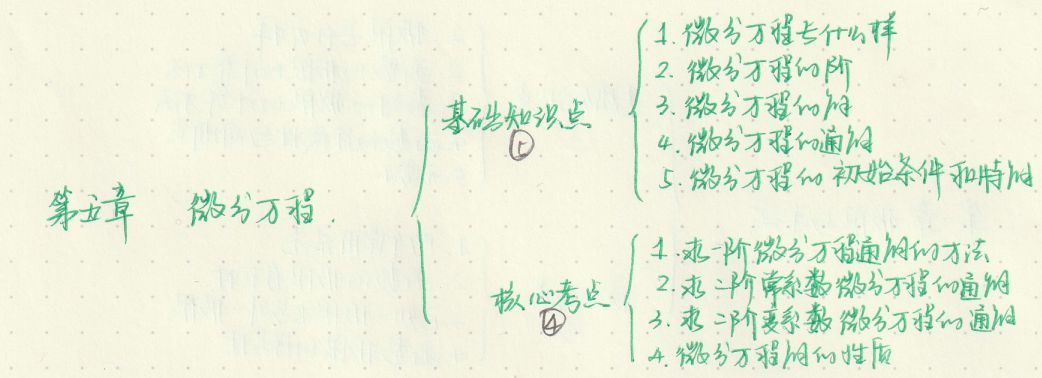 第五章 微分方程.
基础知识点
⑤
1. 微分方程长什么样
2. 微分方程的阶
3. 微分方程的解
4. 微分方程的通解
5. 微分方程的初始条件和特解
核心考点
④
1. 求一阶微分方程通解的方法
2. 求二阶常系数微分方程的通解
3. 求二阶变系数微分方程的通解
4. 微分方程解的性质